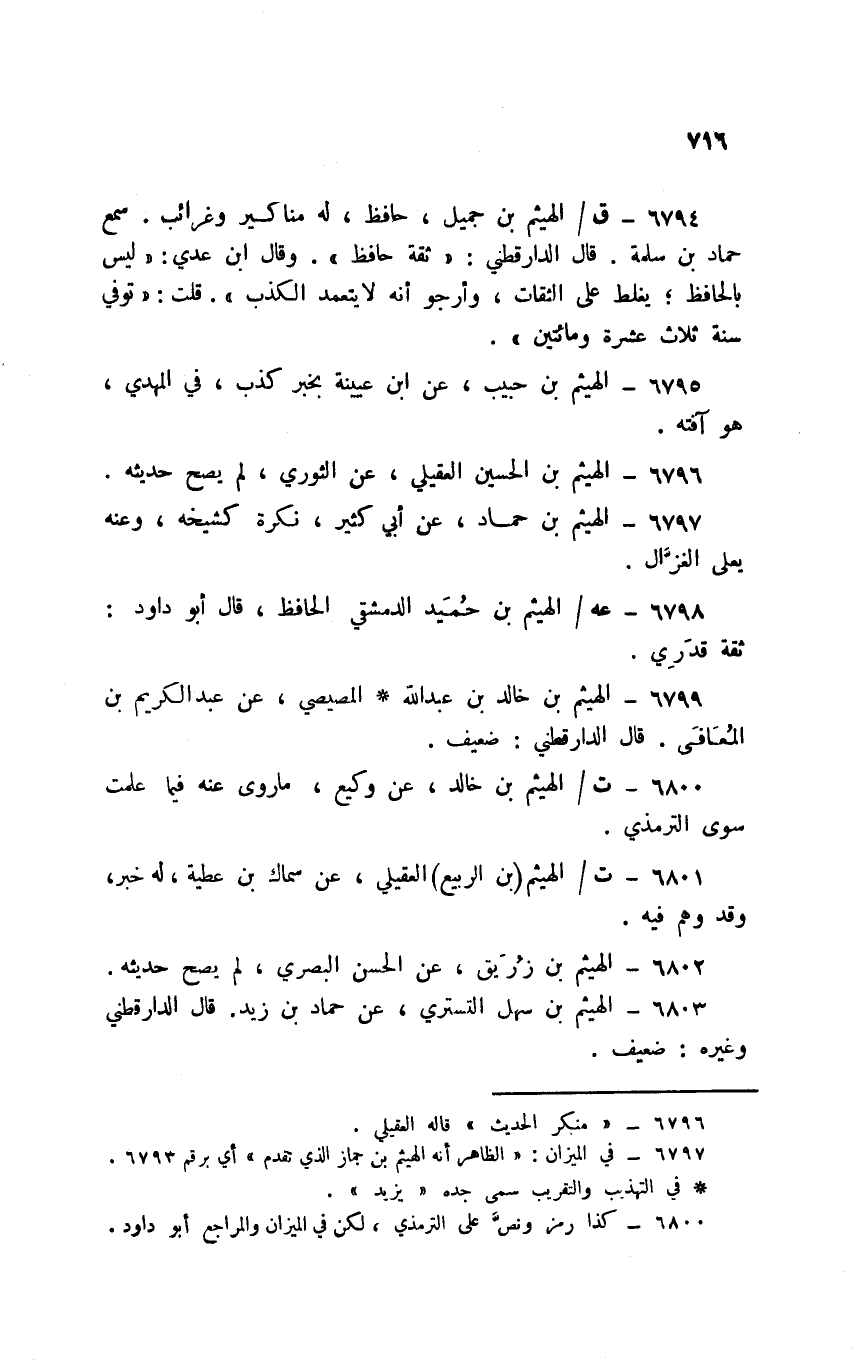 ٧١٦
٦٧٩٤ – ق / الهيثم بن جميل ، حافظ ، له مناكير وغرائب . سمع
حماد بن سلمة . قال الدارقطني : « ثقة حافظ » . وقال ابن عدي : « ليس
بالحافظ ؛ يغلط على الثقات ، وأرجو أنه لايتعمد الكذب » . قلت : « توفي
سنة ثلاث عشرة ومائتين » .
٦٧٩٥ – الهيثم بن حبيب ، عن ابن عيينة بخبر كذب ، في المهدي ،
هو آفته .
٦٧٩٦ – الهيثم بن الحسين العقيلي ، عن الثوري ، لم يصح حديثه .
٦٧٩٧ – الهيثم بن حماد ، عن أبي كثير ، نكرة كشيخه ، وعنه
يعلى الغزَّال .
٦٧٩٨ – عه / الهيثم بن حُمَيد الدمشقي الحافظ ، قال أبو داود :
ثقة قدَرِي .
٦٧٩٩ – الهيثم بن خالد بن عبدالله * المصيصي ، عن عبدالكريم بن
المُعَافَى . قال الدارقطني : ضعيف .
٦٨٠٠ – ت / الهيثم بن خالد ، عن وكيع ، ماروى عنه فيما علمت
سوى الترمذي .
٦٨٠١ – ت / الهيثم (بن الربيع) العقيلي ، عن سماك بن عطية ، له خبر،
وقد وهم فيه .
٦٨٠٢ – الهيثم بن زُرَيق ، عن الحسن البصري ، لم يصح حديثه .
٦٨٠٣ – الهيثم بن سهل التستري ، عن حماد بن زيد. قال الدارقطني
وغيره : ضعيف .
٦٧٩٦ – « منكر الحديث » قاله العقيلي .
٦٧٩٧ – في الميزان : « الظاهر أنه الهيثم بن جماز الذي تقدم » أي برقم ٦٧٩٣ .
* في التهذيب والتقريب سمى جده « يزيد » .
٦٨٠٠ – كذا رمز ونصَّ على الترمذي ، لكن في الميزان والمراجع أبو داود .